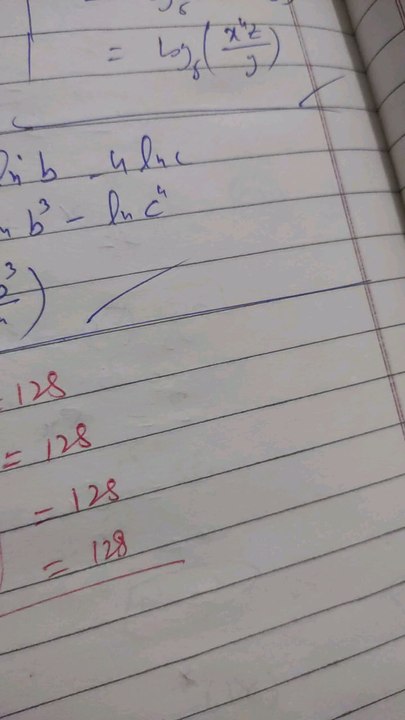 = log₆(x⁴z/y)
ln b - 4 ln c
b³ - ln c⁴
= 128
= 128
= 128
= 128